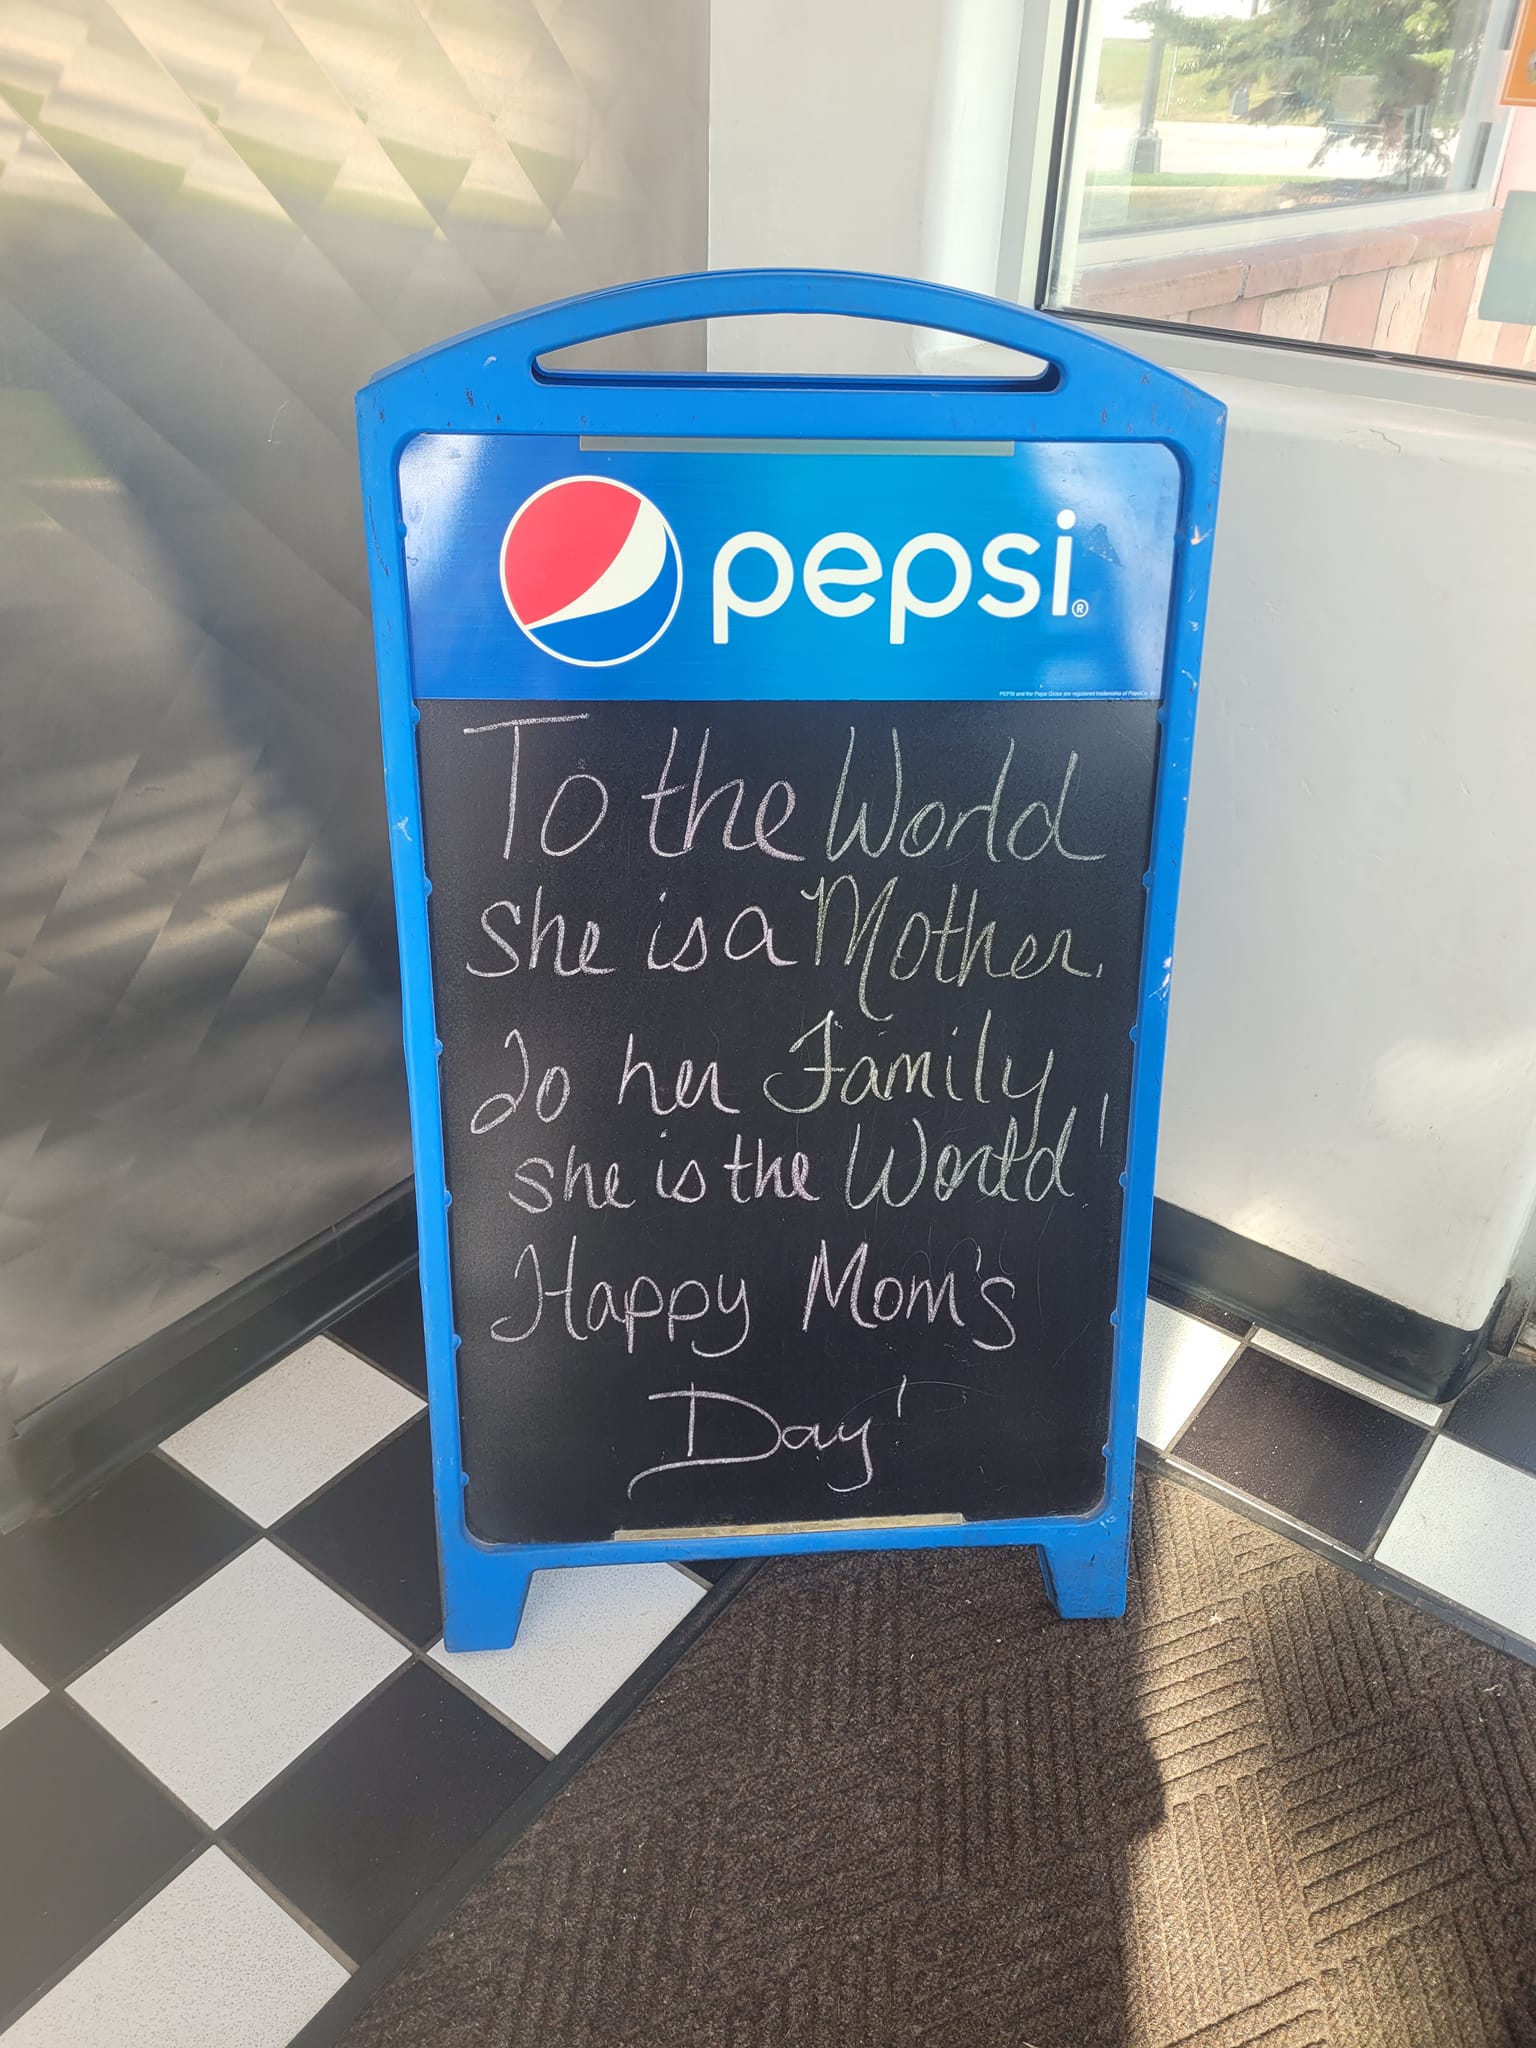 pepsi®
PEPSI and the Pepsi Globe are registered trademarks of PepsiCo,
To the World
she is a Mother.
To her Family
she is the World!
Happy Mom's
Day!